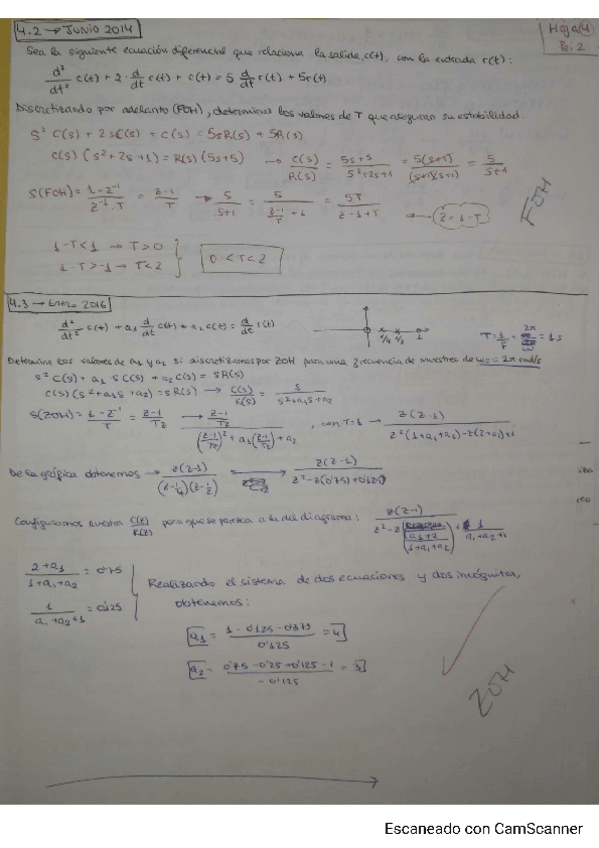 4.2 → JUNIO 2014
Hoja 4
Sea la siguiente ecuación diferencial que relaciona la salida, c(t), con la entrada r(t):
d²/dt² c(t) + 2· d/dt c(t) + c(t) = 5 d/dt r(t) + 5r(t)
Discretizando por adelanto (FOH), determina los valores de T que aseguran su estabilidad.
S² C(s) + 2sC(s) + C(s) = 5sR(s) + 5R(s)
C(s) (s²+2s+1) = R(s) (5s+5) → C(s)/R(s) = 5s+5/s²+2s+1 = 5(s+1)/(s+1)(s+1) = 5/s+1
S(FOH) = 1-z⁻¹/z⁻¹·T = z-1/T → 5/s+1 = 5/(z-1/T + 1) = 5T/z-1+T
z = 1-T
FOH
1-T<1 → T>0
1-T>-1 → T<2
0<T<2
4.3 → Enero 2016
d²/dt² c(t) + a₁ d/dt c(t) + a₂ c(t) = d/dt r(t)
1/4 1/2 1
= 1s
Determine los valores de a₁ y a₂ si discretizamos por ZOH para una frecuencia de muestreo de ωs = 2π rad/s
s² C(s) + a₁ s C(s) + a₂ C(s) = sR(s)
C(s) (s²+a₁s+a₂) = sR(s) → C(s)/R(s) = s/s²+a₁s+a₂
S(ZOH) = 1-z⁻¹/T = z-1/Tz → z-1/Tz / (z-1/Tz)² + a₁(z-1/Tz) + a₂ , con T=1 → z(z-1)/z²(1+a₁+a₂)-z(2+a₁)+1
De la gráfica obtenemos → z(z-1)/(z-1/4)(z-1/2) → z(z-1)/z²-z(0'75)+0'125
Configuramos nuestra C(z)/R(z) para que se parezca a la del diagrama: z(z-1)/z²-z[a₁+2/1+a₁+a₂] + 1/a₁+a₂+1
2+a₁/1+a₁+a₂ = 0'75
1/a₁+a₂+1 = 0'125
Realizando el sistema de dos ecuaciones y dos incógnitas,
obtenemos:
a₁ = 1-0'125-0'375/0'125 = 4
a₂ = 0'75-0'25+0'125-1/-0'125 = 3
ZOH
Escaneado con CamScanner